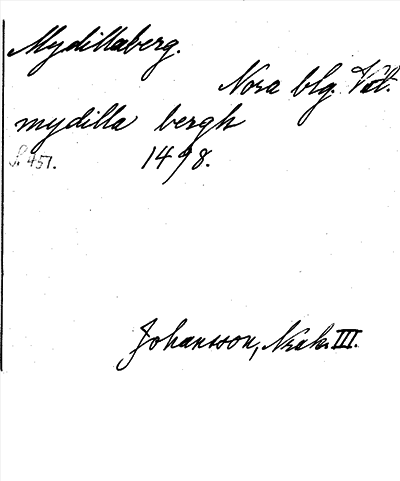 Mydillaberg.
Nora blg. Vstl.
mydilla bergh
S. 457. 1498.
Johansson, Norask. III.